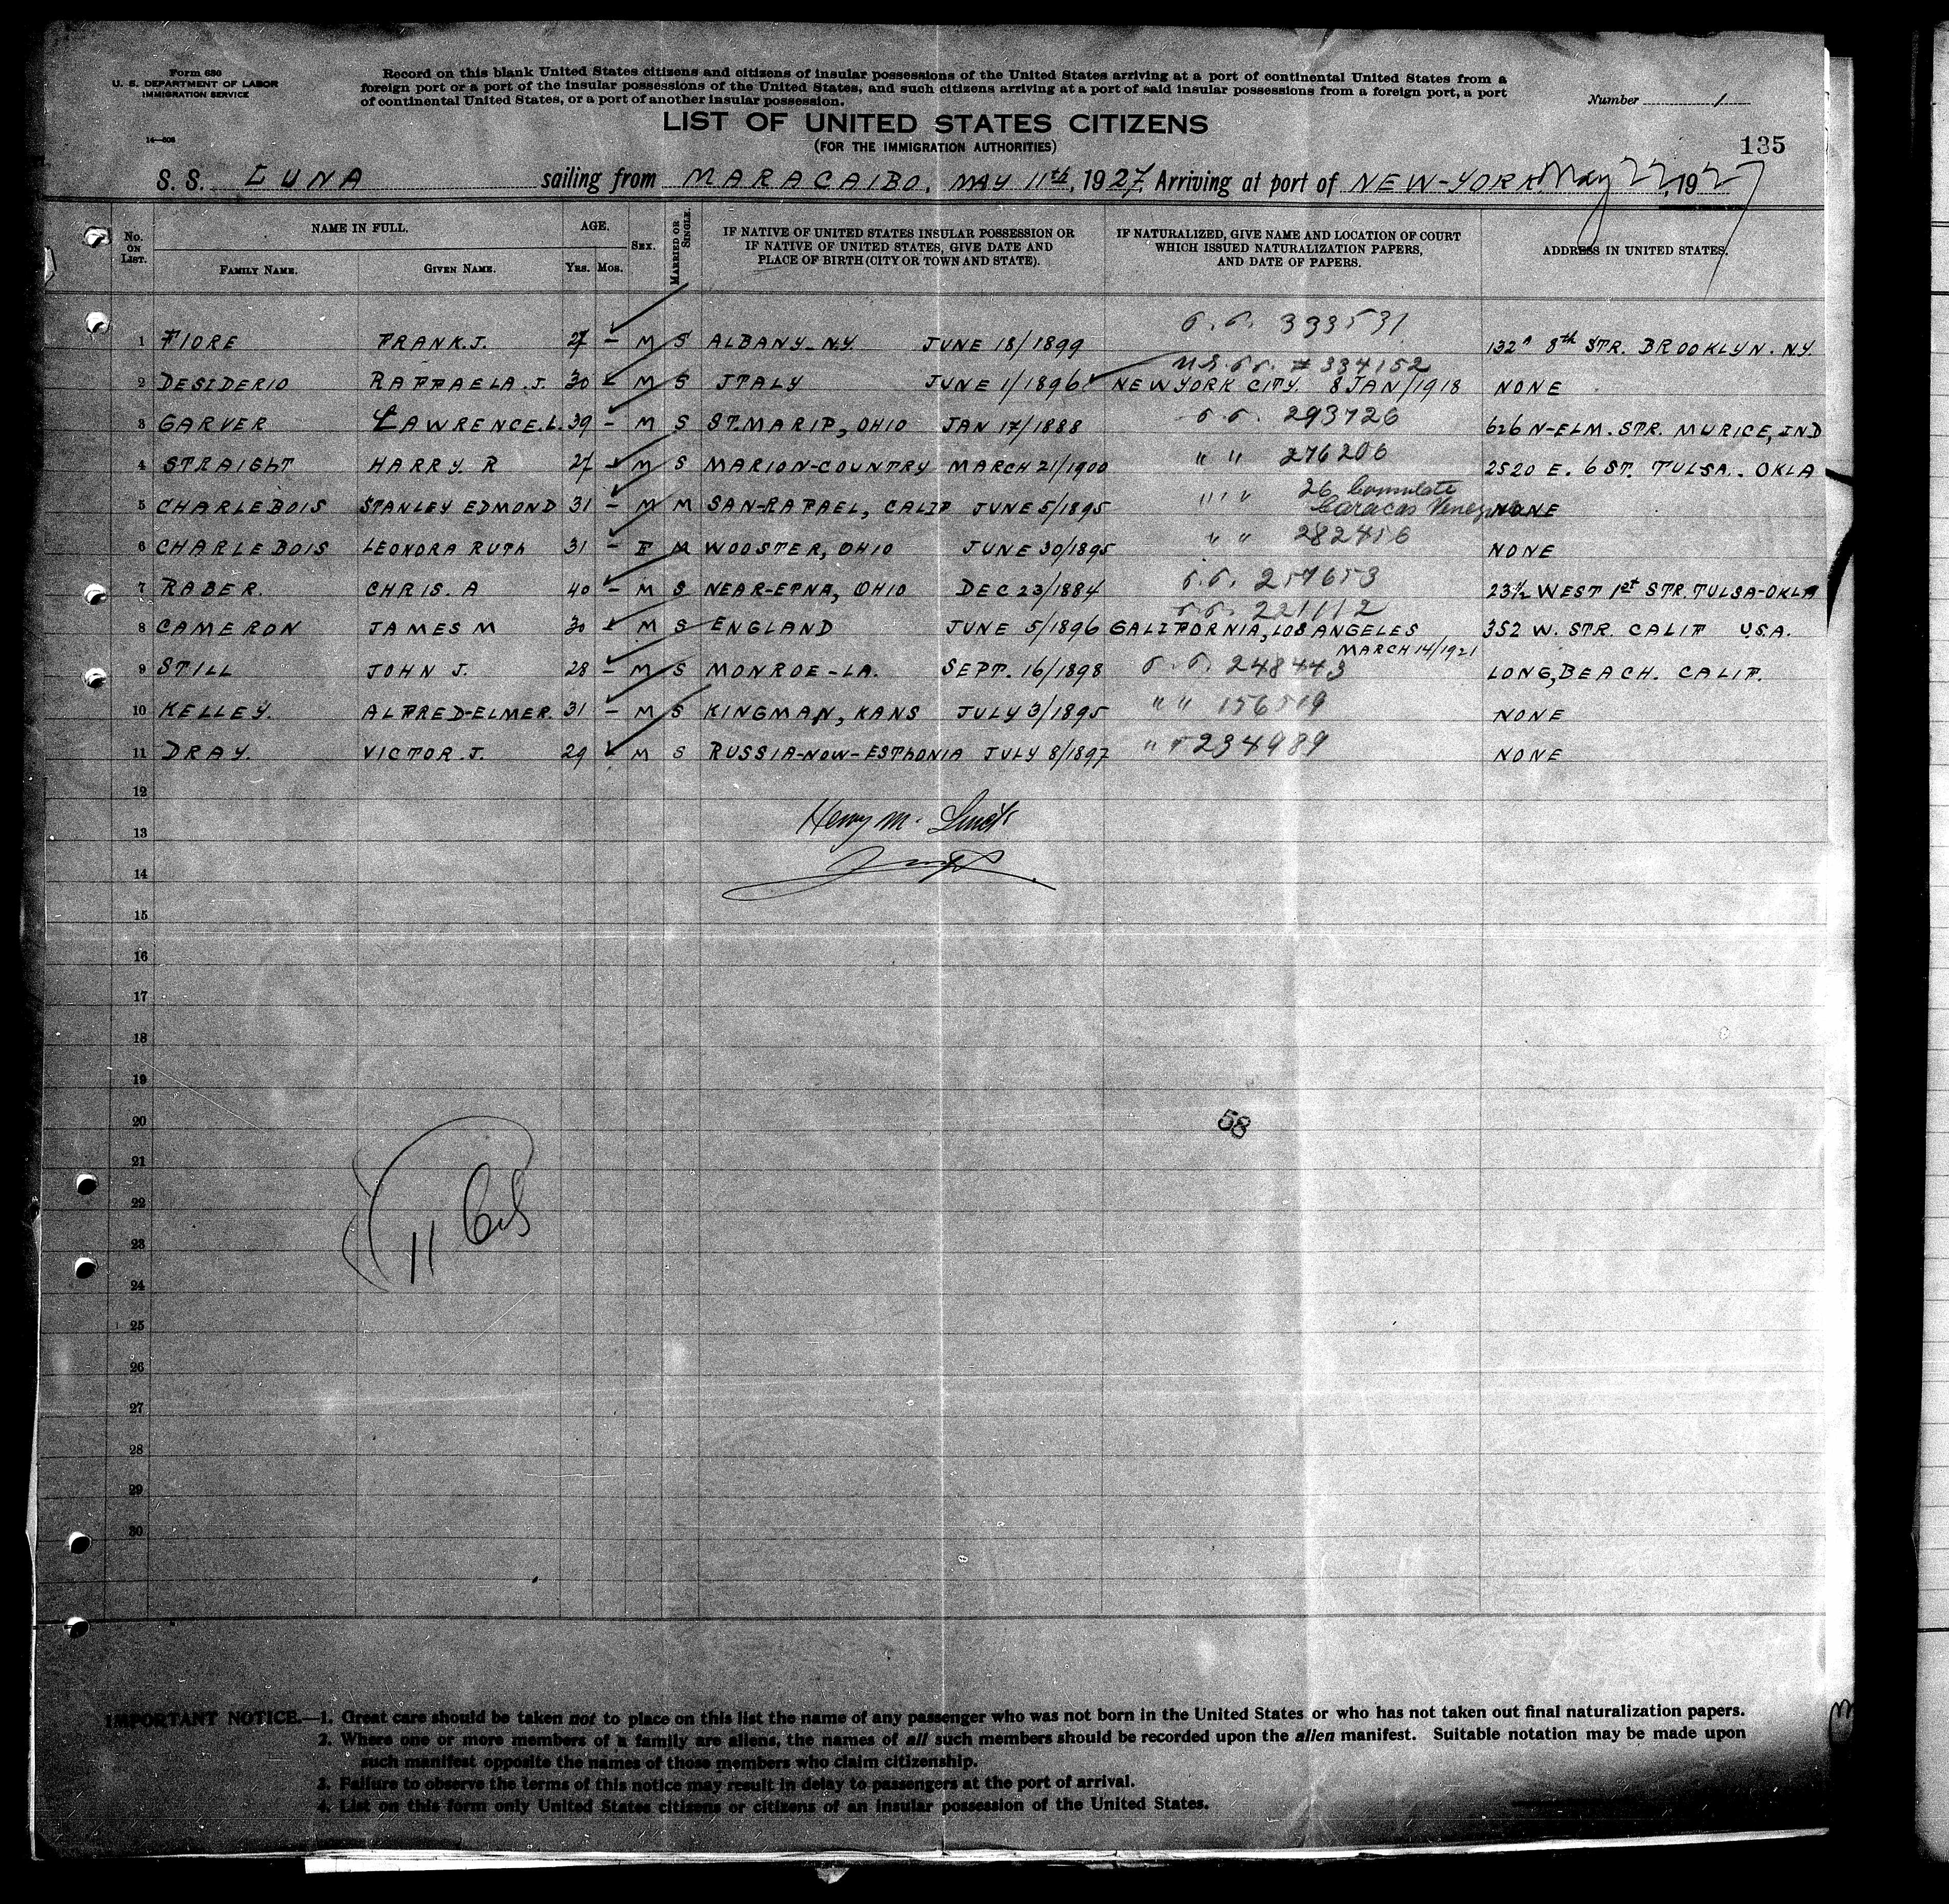 Form 630
U. S. DEPARTMENT OF LABOR
IMMIGRATION SERVICE
14—606
Record on this blank United States citizens and citizens of insular possessions of the United States arriving at a port of continental United States from a
foreign port or a port of the insular possessions of the United States, and such citizens arriving at a port of said insular possessions from a foreign port, a port
of continental United States, or a port of another insular possession.
Number 1
LIST OF UNITED STATES CITIZENS
(FOR THE IMMIGRATION AUTHORITIES)
135
S. S. LUNA sailing from MARACAIBO, MAY 11th, 1927, Arriving at port of NEW-YORK May 22, 1927
No. ON LIST. NAME IN FULL. AGE. SEX. MARRIED OR SINGLE. IF NATIVE OF UNITED STATES INSULAR POSSESSION OR IF NATIVE OF UNITED STATES, GIVE DATE AND PLACE OF BIRTH (CITY OR TOWN AND STATE). IF NATURALIZED, GIVE NAME AND LOCATION OF COURT WHICH ISSUED NATURALIZATION PAPERS, AND DATE OF PAPERS. ADDRESS IN UNITED STATES.
FAMILY NAME. GIVEN NAME. YRS. MOS.
1 FIORE FRANK.J. 27 – M S ALBANY-N.Y. JUNE 18/1899 P.P. 333531 132A 8th STR. BROOKLYN. N.Y.
U.S. P.P. # 334152
2 DESIDERIO RAFFAELA.J. 30 – M S ITALY JUNE 1/1896 NEW YORK CITY 8 JAN/1918 NONE
3 GARVER LAWRENCE.L. 39 – M S ST.MARIP, OHIO JAN 17/1888 P.P. 293726 626 N-ELM. STR. MURICE, IND
4 STRAIGHT HARRY. R 27 – M S MARION-COUNTRY MARCH 21/1900 " " 276206 2520 E. 6 ST. TULSA.. OKLA
5 CHARLEBOIS STANLEY EDMOND 31 – M M SAN-RAFAEL, CALIF JUNE 5/1895 " " 26 Consulate Caracas Venez NONE
6 CHARLEBOIS LEONORA RUTH 31 – F M WOOSTER, OHIO JUNE 30/1895 " " 282456 NONE
7 RABER. CHRIS. A 40 – M S NEAR-ETNA, OHIO DEC 23/1884 P.P. 257653 23½ WEST 1st STR. TULSA-OKLA
P.P. 221112
8 CAMERON JAMES M 30 – M S ENGLAND JUNE 5/1896 CALIFORNIA, LOS ANGELES 352 W. STR. CALIF U.S.A.
MARCH 14/1921
9 STILL JOHN J. 28 – M S MONROE-LA. SEPT. 16/1898 P.P. 248443 LONG, BEACH. CALIF.
10 KELLEY. ALFRED-ELMER. 31 – M S KINGMAN, KANS JULY 3/1895 " " 156519 NONE
11 DRAY. VICTOR.J. 29 – M S RUSSIA-NOW-ESTHONIA JULY 8/1897 " P 234989 NONE
12
Henry M.
13
14
15
16
17
18
19
20
58
21
22
11
23
24
25
26
27
28
29
30
IMPORTANT NOTICE.—1. Great care should be taken not to place on this list the name of any passenger who was not born in the United States or who has not taken out final naturalization papers.
2. Where one or more members of a family are aliens, the names of all such members should be recorded upon the alien manifest. Suitable notation may be made upon
such manifest opposite the names of those members who claim citizenship.
3. Failure to observe the terms of this notice may result in delay to passengers at the port of arrival.
4. List on this form only United States citizens or citizens of an insular possession of the United States.